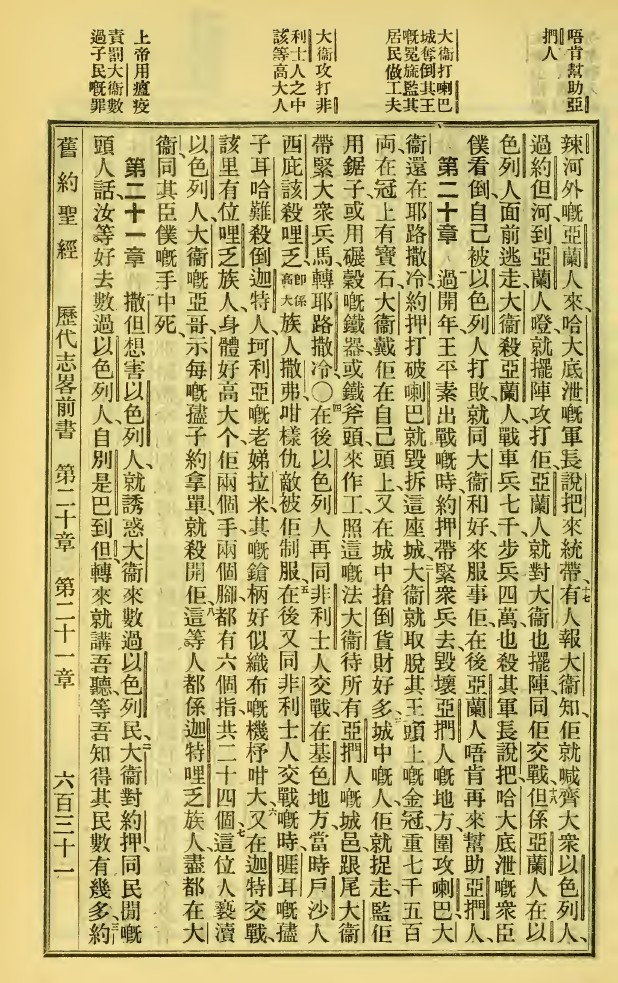 唔肯幫助亞
捫人
大衞打喇巴
城奪倒其王
嘅冕旒監其
居民做工夫
大衞攻打非
利士人之中
該等高大人
上帝用瘟疫
責罰大衞數
過子民嘅罪
辣河外嘅亞蘭人來、哈大底泄嘅軍長說把來統帶、十七有人報大衞知、佢就喊齊大衆以色列人、
過約但河、到亞蘭人噔、就擺陣攻打佢、亞蘭人就對大衞也擺陣、同佢交戰、十八但係亞蘭人在以
色列人面前逃走、大衞殺亞蘭人、戰車兵七千、步兵四萬、也殺其軍長說把、哈大底泄嘅衆臣
僕看倒自己被以色列人打敗、就同大衞和好、來服事佢、在後亞蘭人唔肯再來幫助亞捫人、
第二十章 一過開年、王平素出戰嘅時、約押帶緊衆兵去、毀壞亞捫人嘅地方、圍攻喇巴、大
衞還在耶路撒冷、約押打破喇巴、就毀拆這座城、二大衞就取脫其王頭上嘅金冠、重七千五百
両、在冠上有寶石、大衞戴佢在自己頭上、又在城中搶倒貨財好多、三城中嘅人佢就捉走、監佢
用鋸子、或用碾穀嘅鐵器、或鐵斧頭來作工、照這嘅法、大衞待所有亞捫人嘅城邑、跟尾大衞
帶緊大衆兵馬轉耶路撒冷、〇四在後以色列人再同非利士人交戰在基色地方、當時戶沙人
西庇該殺哩乏卽係高大族人撒弗、咁樣仇敵被佢制服、五在後又同非利士人交戰嘅時、睚耳嘅孻
子耳哈難殺倒迦特人坷利亞嘅老娣拉米、其嘅鎗柄好似織布嘅機杼咁大、六又在迦特交戰、
該里有位哩乏族人、身體好高大个、佢兩個手、兩個腳、都有六個指、共二十四個、七這位人褻瀆
以色列人、大衞嘅亞哥示每嘅孻子約拿單就殺開佢、八這等人都係迦特哩乏族人、盡都在大
衞同其臣僕嘅手中死、
第二十一章 一撒但想害以色列人、就誘惑大衞來數過以色列民、二大衞對約押、同民間嘅
頭人話、汝等好去數過以色列人、自別是巴到但、轉來就講吾聽、等吾知得其民數有幾多、三約
舊約聖經 歷代志畧前書 第二十章 第二十一章 六百三十一